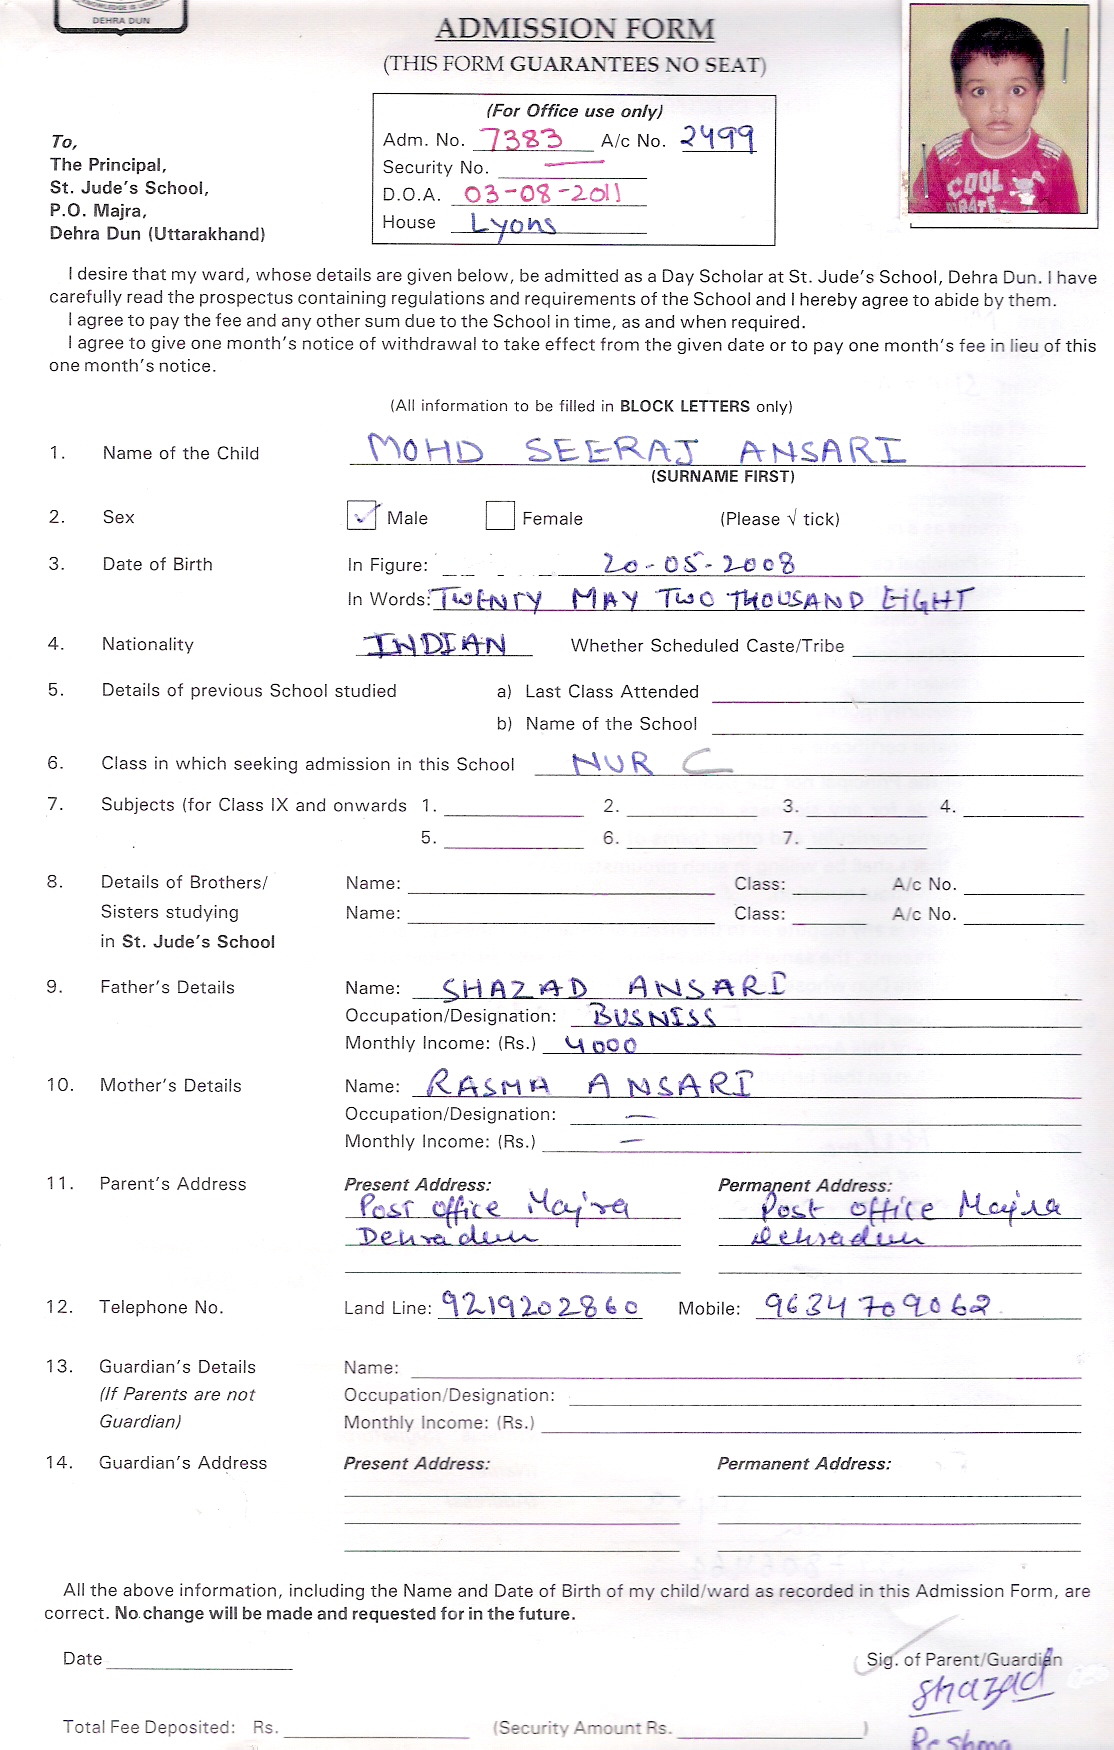 KNOWLEDGE IS LIGHT
DEHRA DUN
ADMISSION FORM
(THIS FORM GUARANTEES NO SEAT)
(For Office use only)
Adm. No. 7383 A/c No. 2499
Security No. —
D.O.A. 03-08-2011
House Lyons
To,
The Principal,
St. Jude's School,
P.O. Majra,
Dehra Dun (Uttarakhand)
COOL
PIRATE
I desire that my ward, whose details are given below, be admitted as a Day Scholar at St. Jude's School, Dehra Dun. I have
carefully read the prospectus containing regulations and requirements of the School and I hereby agree to abide by them.
I agree to pay the fee and any other sum due to the School in time, as and when required.
I agree to give one month's notice of withdrawal to take effect from the given date or to pay one month's fee in lieu of this
one month's notice.
(All information to be filled in BLOCK LETTERS only)
1. Name of the Child MOHD SEERAJ ANSARI
(SURNAME FIRST)
2. Sex ✓ Male Female (Please √ tick)
3. Date of Birth In Figure: 20-05-2008
In Words: TWENTY MAY TWO THOUSAND EIGHT
4. Nationality INDIAN Whether Scheduled Caste/Tribe
5. Details of previous School studied a) Last Class Attended
b) Name of the School
6. Class in which seeking admission in this School NUR C
7. Subjects (for Class IX and onwards 1. 2. 3. 4.
5. 6. 7.
8. Details of Brothers/ Name: Class: A/c No.
Sisters studying Name: Class: A/c No.
in St. Jude's School
9. Father's Details Name: SHAZAD ANSARI
Occupation/Designation: BUSNISS
Monthly Income: (Rs.) 4000
10. Mother's Details Name: RASMA ANSARI
Occupation/Designation: —
Monthly Income: (Rs.) —
11. Parent's Address Present Address: Permanent Address:
Post office Majra Post office Majra
Dehradun Dehradun
12. Telephone No. Land Line: 9219202860 Mobile: 9634709062
13. Guardian's Details Name:
(If Parents are not Occupation/Designation:
Guardian) Monthly Income: (Rs.)
14. Guardian's Address Present Address: Permanent Address:
All the above information, including the Name and Date of Birth of my child/ward as recorded in this Admission Form, are
correct. No change will be made and requested for in the future.
Date Sig. of Parent/Guardian
Shazad
Total Fee Deposited: Rs. (Security Amount Rs. )
Reshma